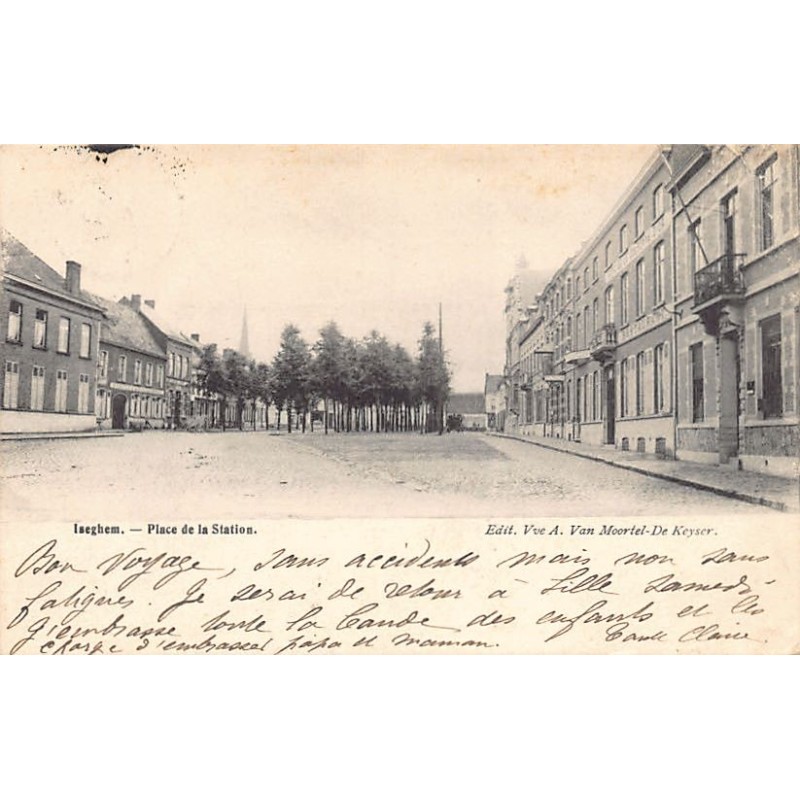 Iseghem. — Place de la Station.
Edit. Vve A. Van Moortel-De Keyser.
Bon Voyage, sans accidents mais non sans
fatigues. Je serai de retour à Lille samedi
J'embrasse toute la bande des enfants et les
charge d'embrasser papa et maman. Claire